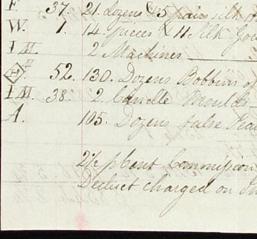 F. 37. 21. Dozens & 5 pairs silk
W. 1. 14 pieces & 11. silk
I M. 2 Machines
52. 130. Dozens Bobbins of
I M. 38. 2. Candle Moulds
A. 105. Dozens false
2½ p Cent Commission
Deduct charged on